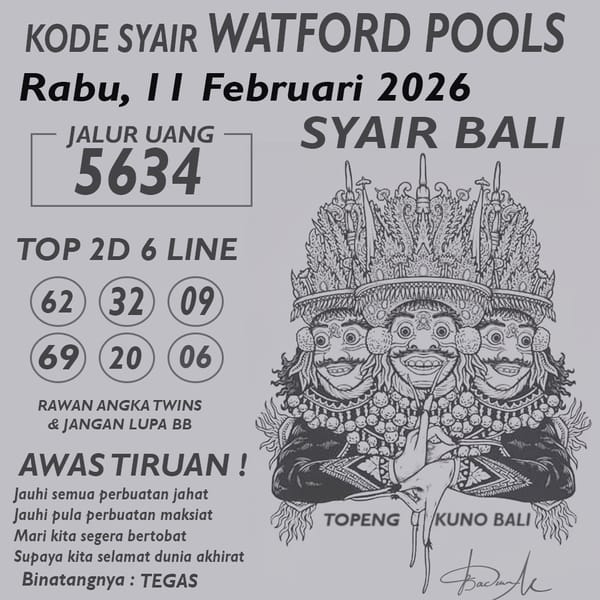 KODE SYAIR WATFORD POOLS
Rabu, 11 Februari 2026
SYAIR BALI
JALUR UANG
5634
TOP 2D 6 LINE
62 32 09
69 20 06
RAWAN ANGKA TWINS
& JANGAN LUPA BB
AWAS TIRUAN !
Jauhi semua perbuatan jahat
Jauhi pula perbuatan maksiat
Mari kita segera bertobat
Supaya kita selamat dunia akhirat
Binatangnya : TEGAS
TOPENG KUNO BALI